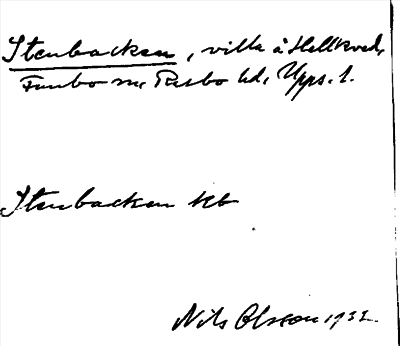 Stenbacken, villa å Hellkved,
Funbo sn, Rasbo hd, Upps. l.
Stenbacken kb
Nils Olsson 1932.